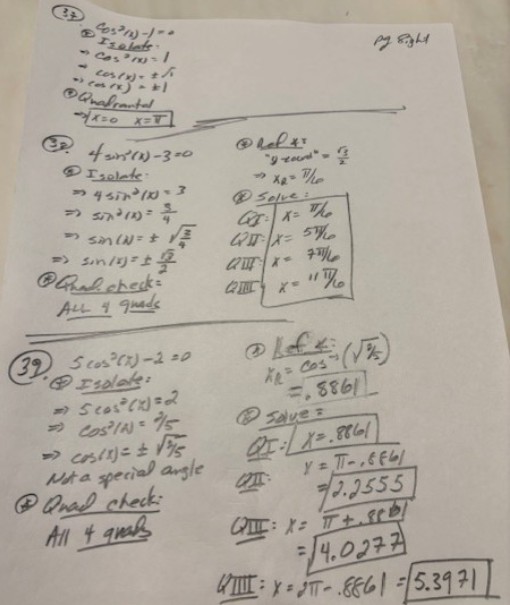 pg Eight
37
cos²(x)-1=0
Isolate:
⇒ cos²(x) = 1
⇒ cos(x) = ±√1
⇒ cos(x) = ±1
Quadrantal
⇒ x=0 x=π
38
4 sin²(x)-3=0
Isolate:
⇒ 4 sin²(x) = 3
⇒ sin²(x) = 3/4
⇒ sin(x) = ± √3/4
⇒ sin(x) = ± √3/2
Quad. check:
ALL 4 quads
Ref ∡:
= √3/2
⇒ xR = π/6
Solve:
QI: x = π/6
QII: x = 5π/6
QIII: x = 7π/6
QIIII: x = 11π/6
39
5cos²(x)-2=0
Isolate:
⇒ 5cos²(x)=2
⇒ cos²(x) = 2/5
⇒ cos(x) = ± √2/5
Not a special angle
Quad check:
All 4 quads
Ref ∡:
xR = cos⁻¹(√2/5)
= .8861
Solve:
QI: x = .8861
QII: x = π - .8861
= 2.2555
QIII: x = π + .8861
= 4.0277
QIIII: x = 2π - .8861 = 5.3971